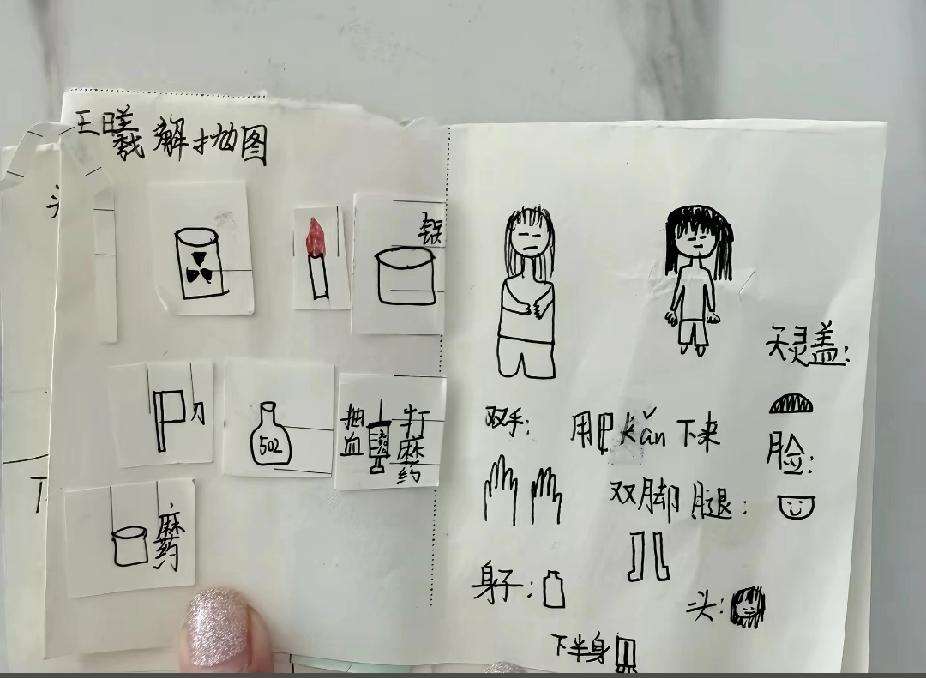 王曦解抛图
铁
刀
502
抽血
打麻药
麻药
天灵盖：
双手：
用 kǎn下来
脸：
双脚腿：
身子：
头：
下半身